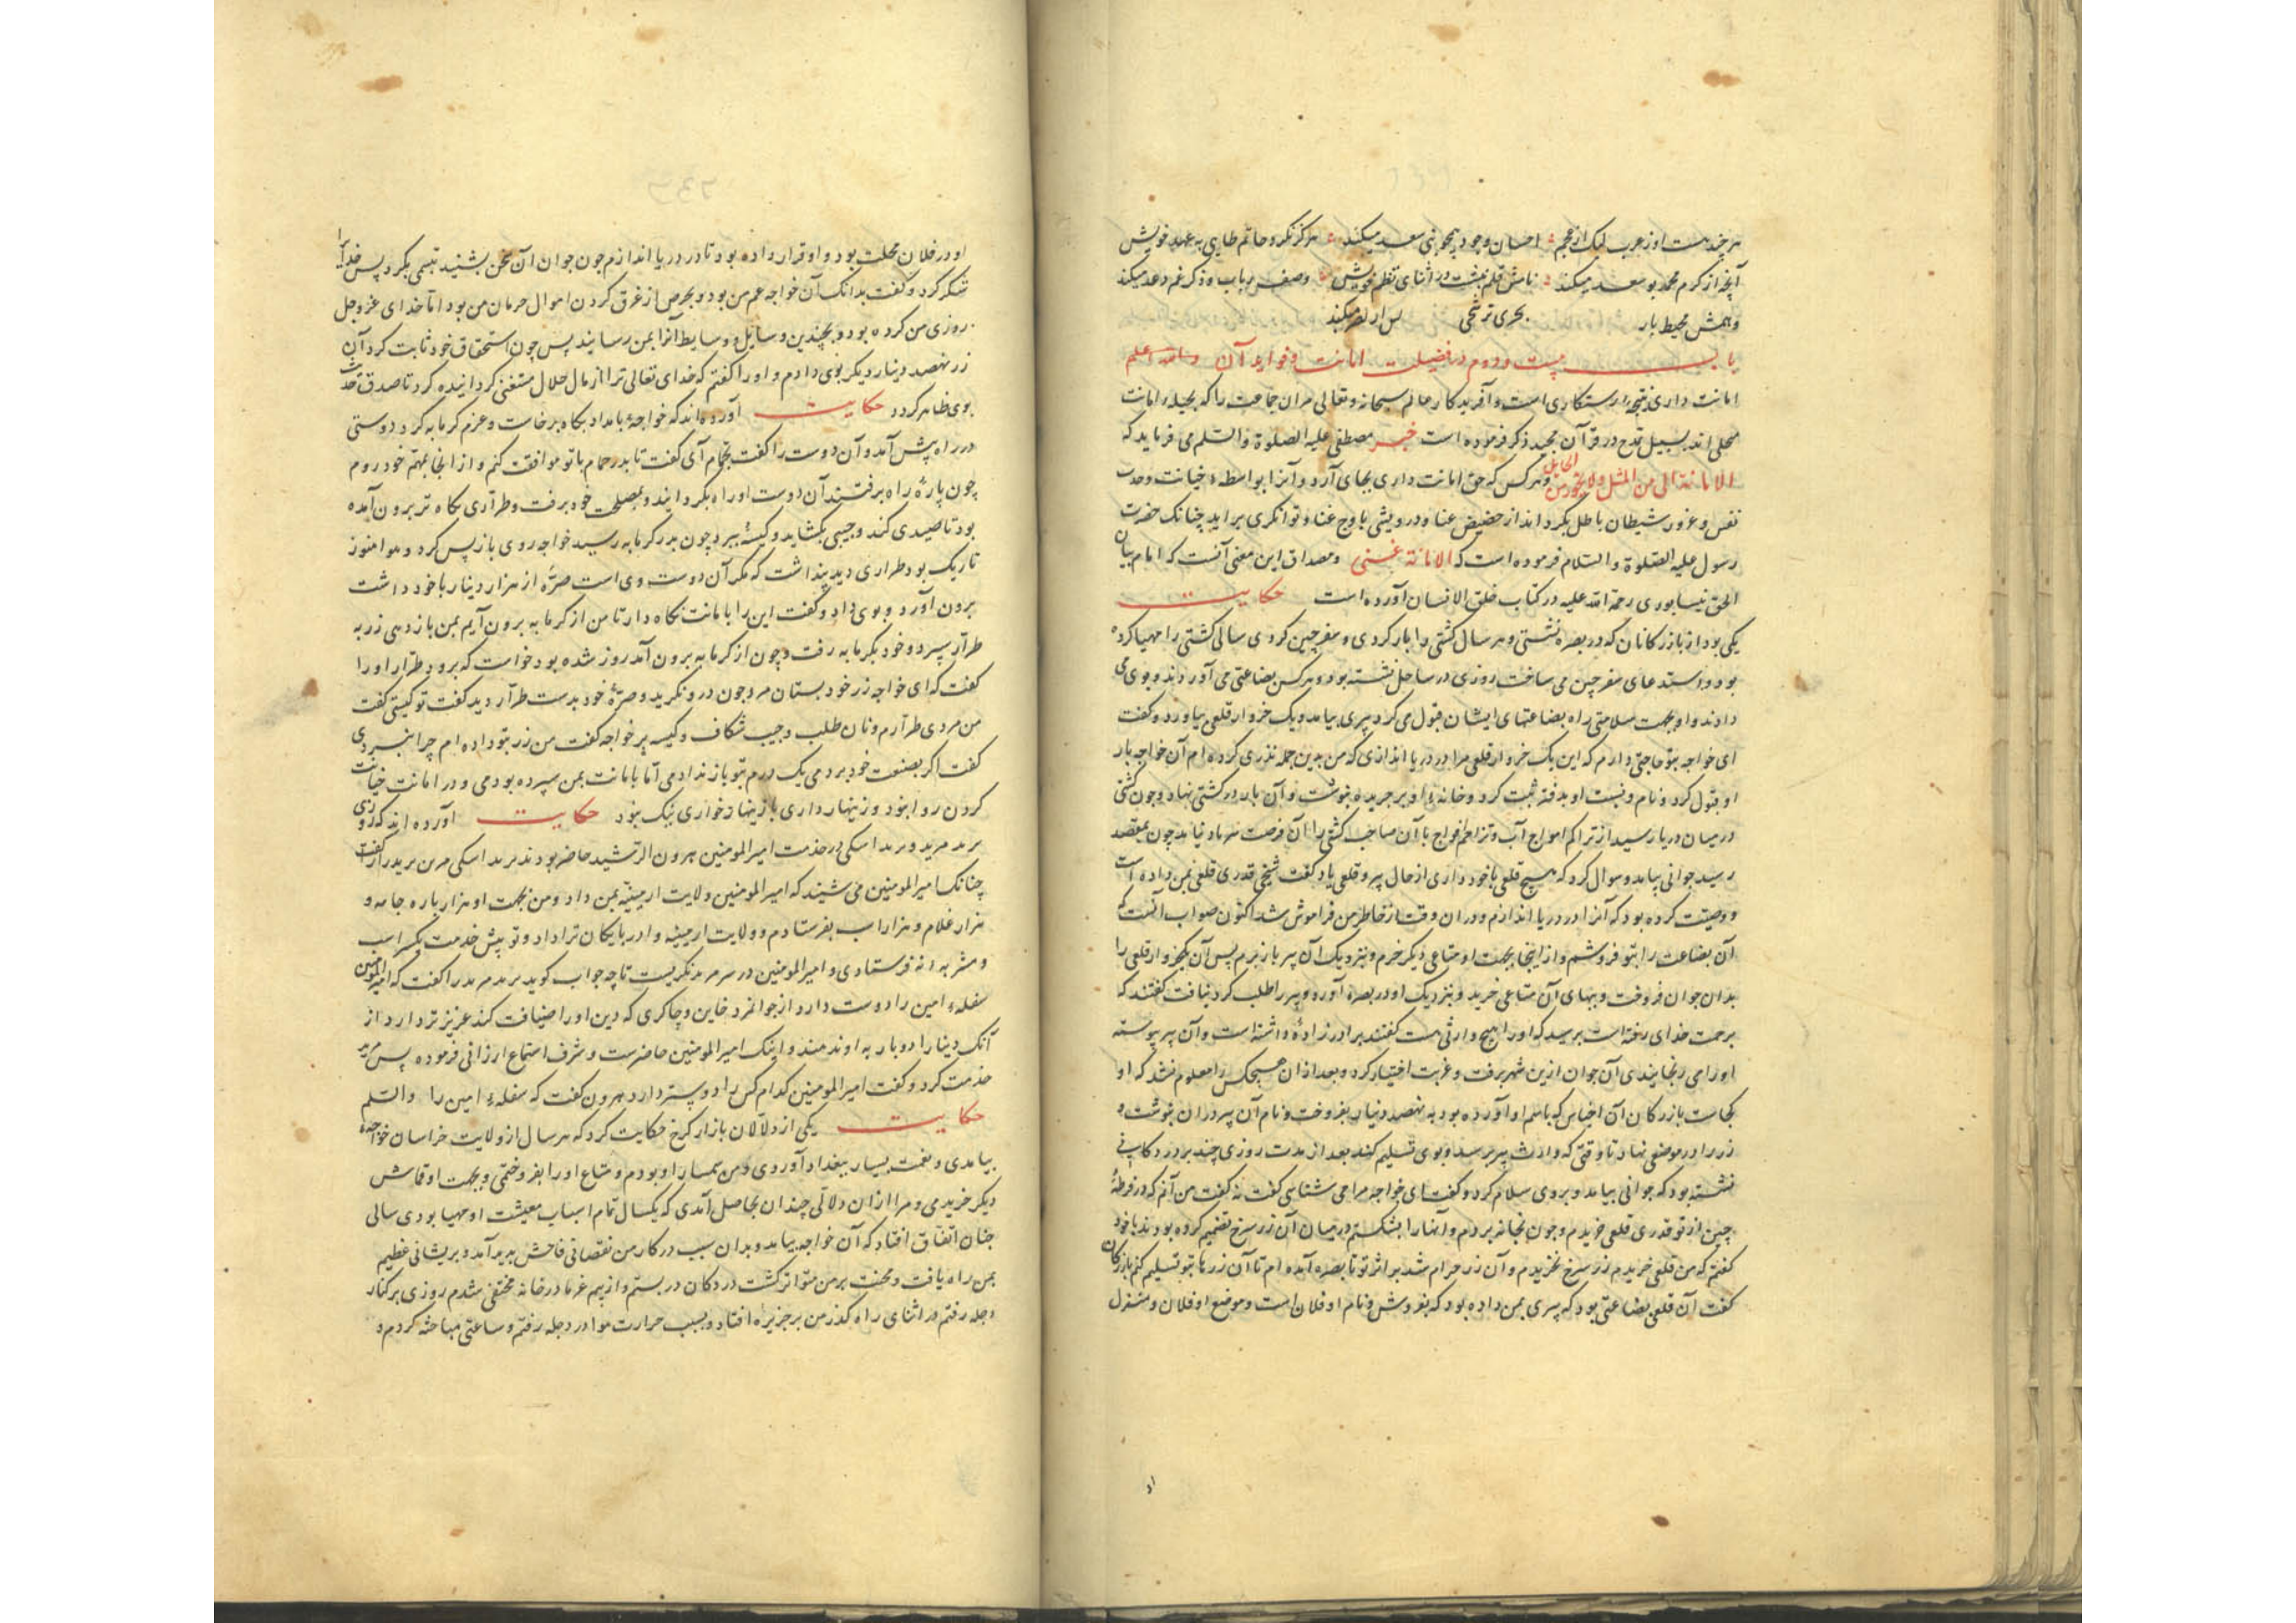 هر چند هست او ز عرب لیک از عجم احسان وجود بنی سعد میکند هرگز نکرد حاتم طایی به عهد خویش
آنچه از کرم محمد بو سعد میکند نامش قلم نبشت در اثنای نظم خویش وصف رباب و ذکر غم دعد میکند
باب بیست و دوم در فضیلت امانت و فواید آن والله اعلم
امانت داری نتیجهٔ رستکاری است و آفریدکار عالم سبحانه و تعالی مر ان جماعت را که بحیلهٔ امانت
محلی اند بسبیل مدح در قرآن مجید ذکر فرموده است خبر مصطفی علیه الصلوة والسلم می فرماید که
و هر کس که حق امانت داری بجای آرد و آنرا بواسطهٔ خیانت و حدت
نفس و غرور شیطان باطل نکرداند از حضیض عنا و درویشی باوج غنا و توانکری براید چنانک حضرت
رسول علیه الصلوة والسلام فرموده است که الامانة غنی و مصداق این معنی آنست که امام بیان
الحق نیسابوری رحمة الله علیه در کتاب خلق الانسان آورده است حکایت
یکی بود از بازرکانان که در بصره نشستی و هر سال کشتی را بار کردی و سفر چین کردی سالی کشتی را مهیا کرده
بود و استدعای سفر چین می ساخت روزی در ساحل نشسته بود و هر کس بضاعتی می آوردند و بوی می
دادند و او بجهت سلامتی راه بضاعتهای ایشان قبول می کرد پیری بیامد و یک خروار قلعی بیاورد و گفت
ای خواجه بتو حاجتی دارم که این یک خروار قلعی مرا در دریا اندازی که من بدین جمله نذری کرده ام آن خواجه بار
او قبول کرد و نام و نسبت او بدفتر ثبت کرد و خانهٔ او بر جریده بنوشت و آن بار در کشتی نهاد و چون کشتی
در میان دریا رسید از تراکم امواج آب و تزاحم افواج باد آن صاحب کشتی را آن فرصت یاد نیامد چون بمقصد
رسید جوانی بیامد و سوال کرد که هیچ قلعی با خود داری از حال پیر و قلعی یاد کرد گفت شیخی قدری قلعی بمن داده است
و وصیت کرده بود که آنرا در دریا اندازم و دران وقت از خاطر من فراموش شد اکنون صواب آنست که
آن بضاعت را بتو فروشم و از اینجا بجهت او متاعی دیگر خرم و بنزدیک آن پیر باز برم پس آن یکخروار قلعی را
بدان جوان فروخت و ببهای آن متاعی خرید و بنزدیک او در بصره آورد و پیر را طلب کرد نیافت گفتند که
برحمت خدای رفته است پرسید که او را هیچ وارثی هست گفتند برادر زادهٔ داشته است و آن پیر پیوسته
او را می رنجانیدی آن جوان ازین شهر برفت و غربت اختیار کرد و بعد ازان هیچکس را معلوم نشد که او
کجاست بازرکان آن اجناس که باسم او آورده بود به نهصد دینار بفروخت و نام آن پیر دران بنوشت و
زر را در موضعی نهاد تا وقتی که وارث پیر برسد و بوی تسلیم کند بعد از مدت روزی چند بر در دکانی
نشسته بود که جوانی بیامد و بروی سلام کرد و گفت ای خواجه مرا می شناسی گفت نه گفت من آنم که در فرضهٔ
چین از تو قدری قلعی خریدم و چون بخانه بردم و آنها را بشکستم در میان آن زر سرخ تضمیم کرده بودند با خود
گفتم که من قلعی خریدم زر سرخ نخریدم و آن زر حرام شد بر اثر تو تا بصره آمده ام تا آن زرها بتو تسلیم کنم بازرکان
گفت آن قلعی بضاعتی بود که پیری بمن داده بود که بفروش و نام او فلان است و موضع او فلان و منزل
او در فلان محلت بود و او قرار داده بود تا در دریا اندازم چون جوان آن سخن بشنید تبسمی بکرد پس خدا را
شکر کرد و گفت بدانک آن خواجه عم من بود و بحرص از غرق کردن اموال حرمان من بود اما خدای عزوجل
روزی من کرده بود و بچندین وسایل و وسایط آنرا بمن رسانید پس چون استحقاق خود ثابت کرد آن
زر نهصد دینار دیگر بوی دادم و او را گفتم که خدای تعالی ترا از مال حلال مستغنی کردانیده کرد تا صدق حدیث
بوی ظاهر کردد حکایت آورده اند که خواجهٔ بامداد پکاه برخاست و عزم کرمابه کرد دوستی
در راه پیش آمد و آن دوست را گفت بحمام آی گفت تا بدر حمام با تو موافقت کنم و از انجا بمهم خود روم
چون پارهٔ راه برفتند آن دوست او راه بکردانید و بمصلحت خود برفت و طراری بکاه تر برون آمده
بود تا صیدی کند و جیبی بکشاید و کیسهٔ ببرد چون بدر کرمابه رسید خواجه روی باز پس کرد و هوا هنوز
تاریک بود طراری دید پنداشت که مکر آن دوست وی است صرّه از هزار دینار با خود داشت
برون آورد و بوی داد و گفت این را بامانت نکاه دار تا من از کرمابه برون آیم بمن باز دهی زر به
طرار سپرد و خود بکرمابه رفت و چون از کرمابه برون آمد روز شده بود خواست که برود طرّار او را
گفت که ای خواجه زر خود بستان مرد چون درو نکرید و صرّهٔ خود بدست طرّار دید گفت تو کیستی گفت
من مردی طرّارم و نان طلب و جیب شکاف و کیسه بر خواجه گفت من زر بتو داده ام چرا نبردی
گفت اگر بصنعت خود بردمی یک درم بتو باز ندادمی اما بامانت بمن سپرده بودی و در امانت خیانت
کردن روا نبود و زینهار داری با زینهار خواری نیک نبود حکایت آورده اند که روزی
در خدمت امیر المومنین هرون الرشید حاضر بودند
چنانک امیر المومنین می شنید که امیر المومنین ولایت ارمینیه بمن داد و من بجهت او هزار باره جامه و
هزار غلام و هزار اسب بفرستادم و ولایت ارمینیه و ادربایکان ترا داد و تو پیش خدمت یکسر اسب
فرستادی و امیر المومنین در نکریست تا چه جواب کوید را گفت که امیر المومنین
سفلهٔ امین را دوست دارد از جوانمرد خاین و چاکری که دین او را ضیافت کند عزیزتر دارد از
آنک دینار او و اینک امیر المومنین حاضرست و شرف استماع ارزانی فرموده پس
خدمت کرد و گفت امیر المومنین کدام کس را دوستر دارد هرون گفت که سفلهٔ امین را والسلم
حکایت یکی از دلالان بازار کرخ حکایت کرد که هر سال از ولایت خراسان خواجهٔ
بیامدی و نعمت بسیار ببغداد آوردی و من سمسار او بودم و متاع او را بفروختمی و بجهت او قماش
دیگر خریدمی و مرا ازان دلالی چندان بحاصل آمدی که یکسال تمام اسباب معیشت او مهیا بودی سالی
چنان اتفاق افتاد که آن خواجه نیامد و بدان سبب در کار من نقصانی فاحش پدید آمد و پریشانی عظیم
بمن راه یافت و محنت بر من متواتر گشت در دکان در بستم و از بیم غرما در خانه مختفی شدم روزی بر کنار
دجله رفتم در اثنای راه گذر من بر جزیرهٔ افتاد و بسبب حرارت هوا در دجله رفتم و ساعتی مباحثه کردم و